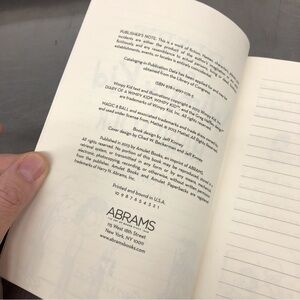 PUBLISHER'S NOTE: This is a work of fiction. Names, characters, places, and
incidents are either the product of the author's imagination or used
fictitiously, and any resemblance to actual persons, living or dead, business
establishments, events, or locales is entirely coincidental.
Cataloging-in-Publication Data has been applied for and may be
obtained from the Library of Congress.
ISBN
Wimpy Kid text and illustrations copyright
DIARY OF A WIMPY KID®, WIMPY KID™, and the Greg Heffley design™
are trademarks of Wimpy Kid, Inc. All rights reserved.
MAGIC 8 BALL and associated trademarks and trade dress are owned by,
and used under license from, Mattel.
Book design by Jeff Kinney
Cover design by Chad W. Beckerman and Jeff Kinney
Published in 2013 by Amulet Books, an imprint of ABRAMS.
All rights reserved. No portion of this book may be reproduced, stored in a
retrieval system, or transmitted in any form or by any means, mechanical,
electronic, photocopying, recording, or otherwise, without written permission
from the publisher. Amulet Books and Amulet Paperbacks are registered
trademarks of Harry N. Abrams, Inc.
Printed and bound in U.S.A.
10 9 8 7 6 5 4 3 2 1
ABRAMS
115 West 18th Street
New York, NY 10011
www.abramsbooks.com